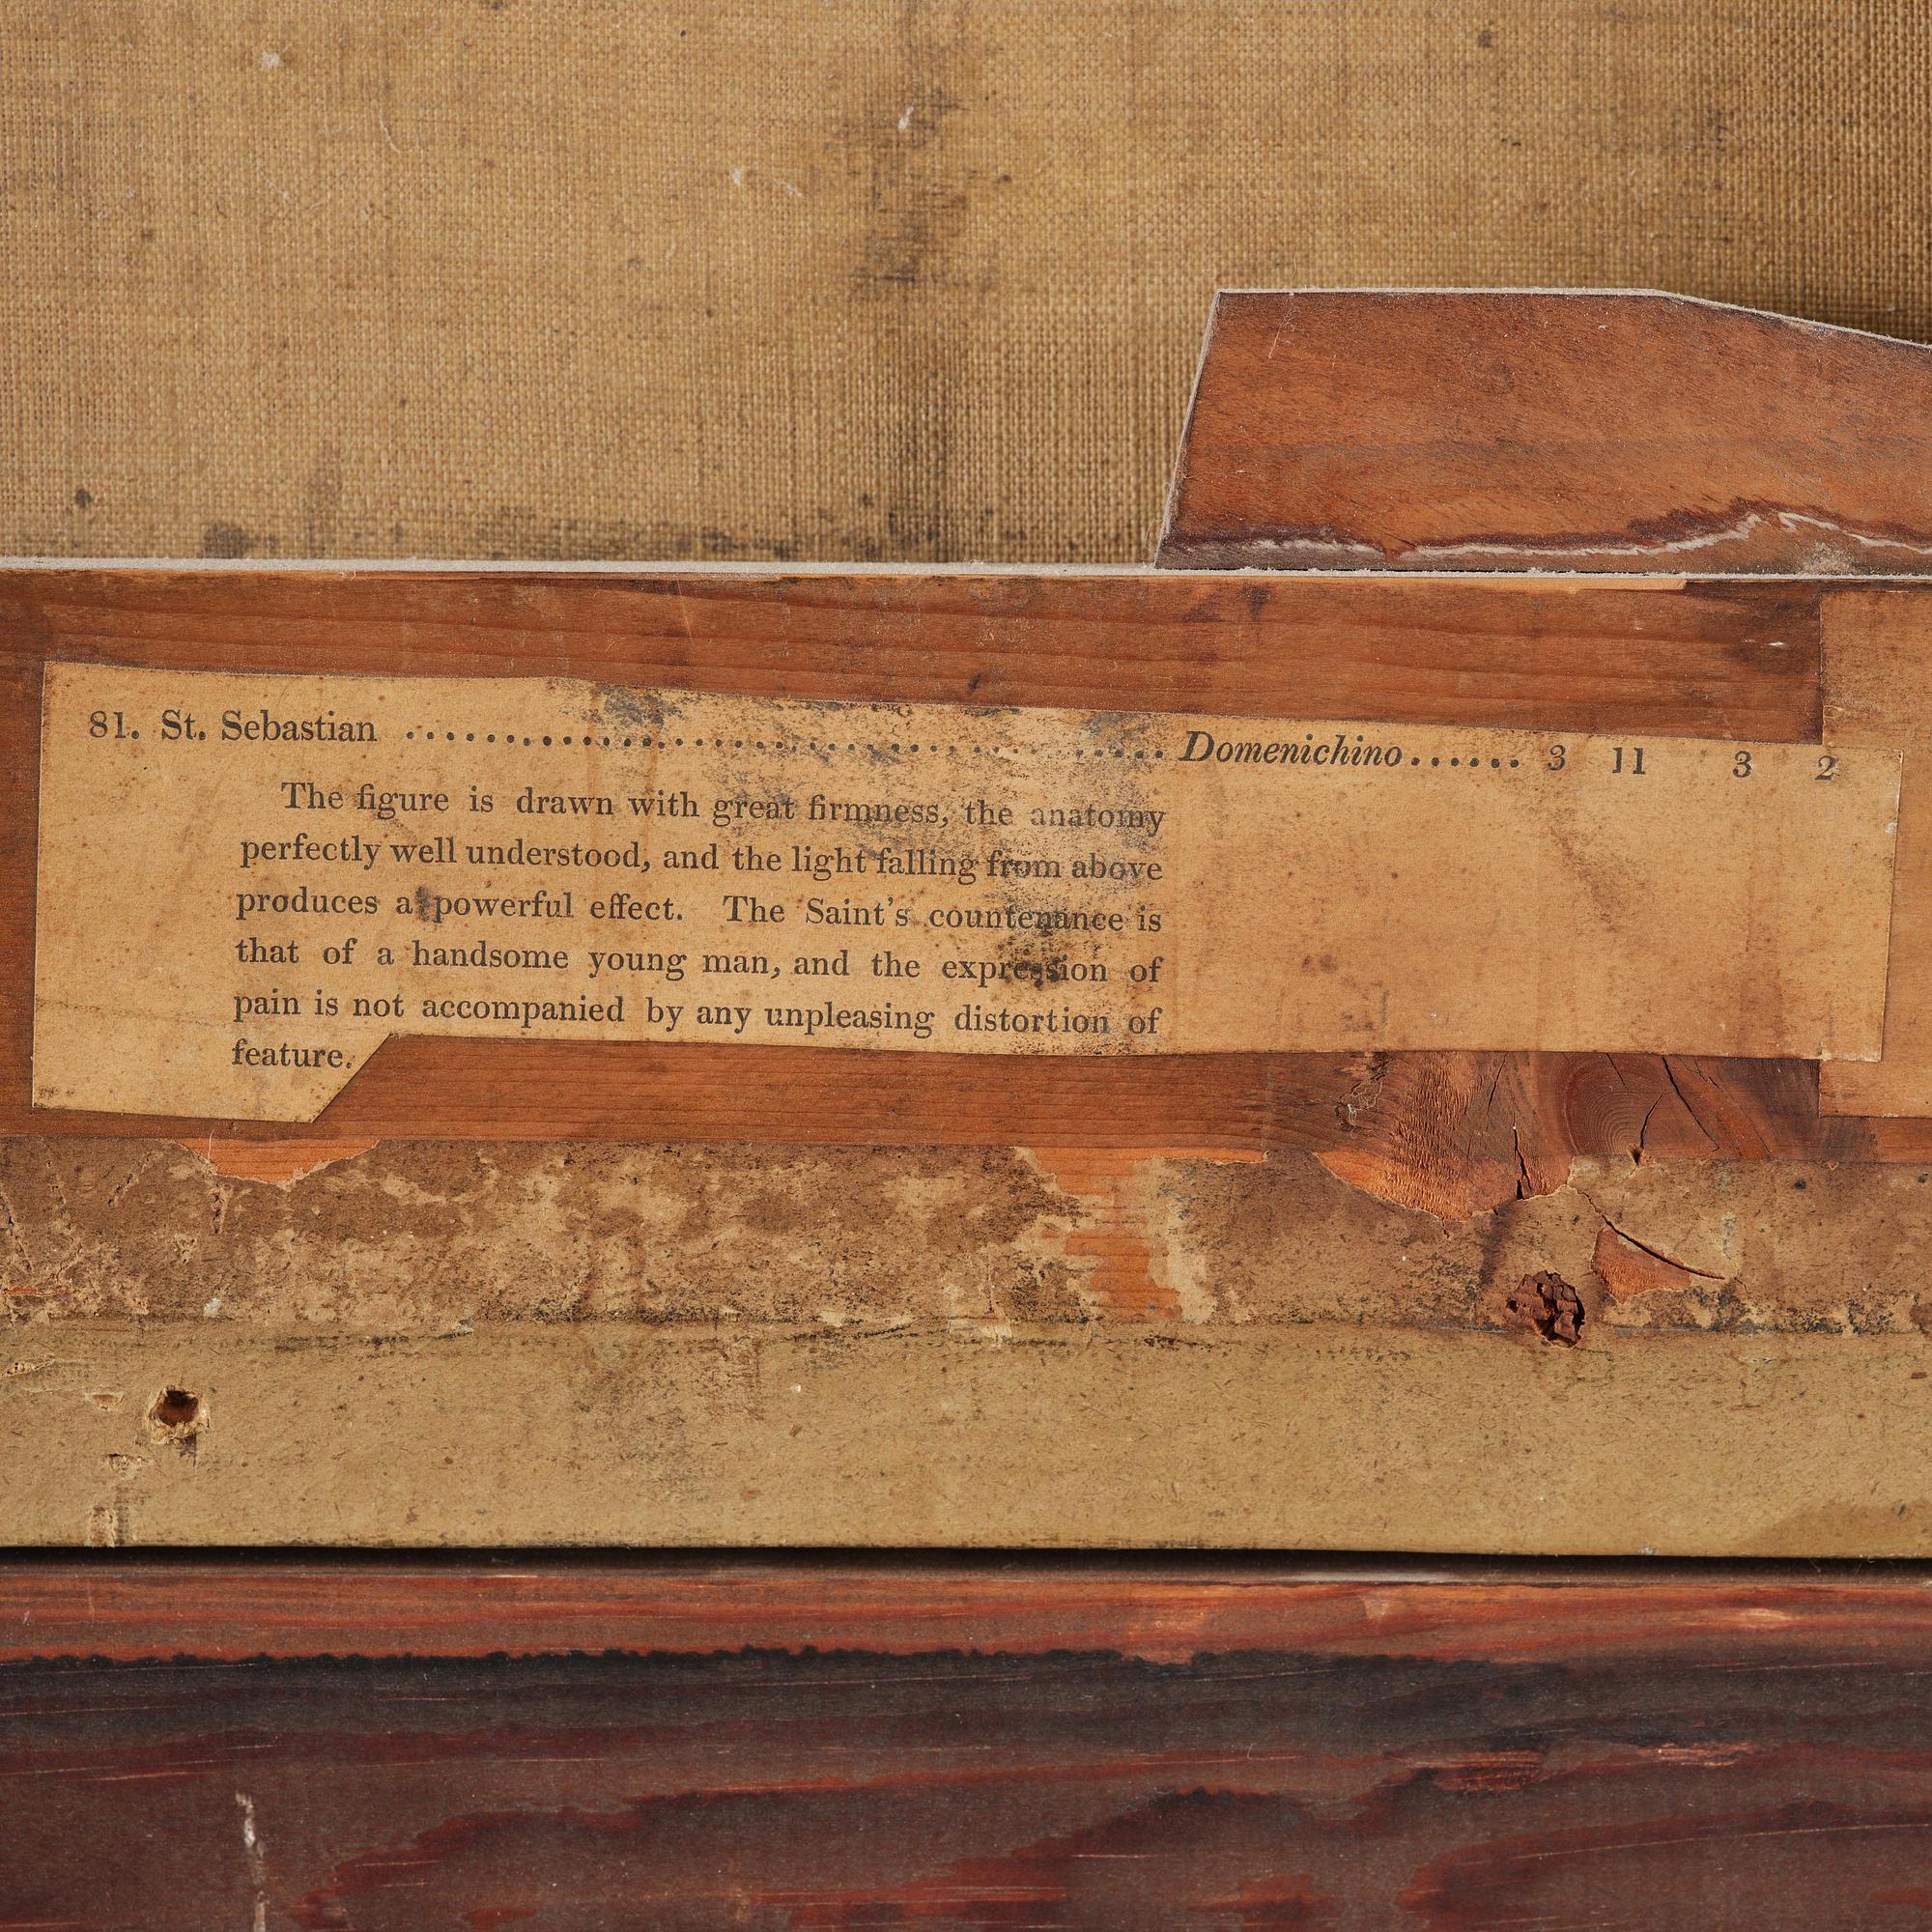 81. St. Sebastian ........................................ Domenichino...... 3 11 3 2
The figure is drawn with great firmness, the anatomy
perfectly well understood, and the light falling from above
produces a powerful effect. The Saint's countenance is
that of a handsome young man, and the expression of
pain is not accompanied by any unpleasing distortion of
feature.